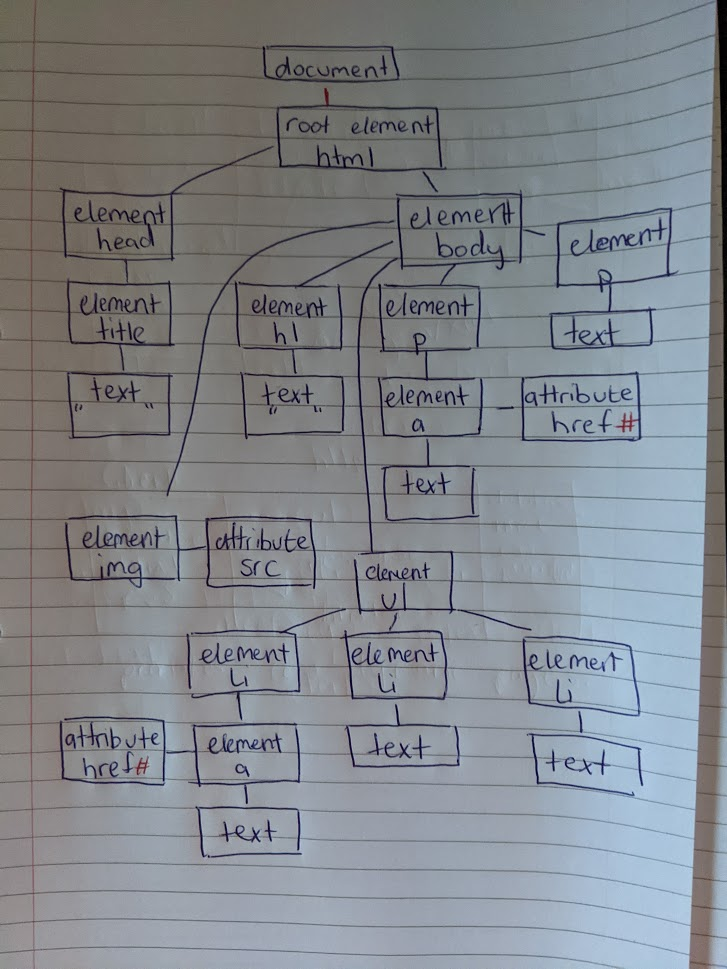 document
root element
html
element
head
element
body
element
p
element
title
element
h1
element
p
text
"text"
"text"
element
a
attribute
href#
text
element
img
attribute
src
element
ul
element
Li
element
Li
element
Li
attribute
href#
element
a
text
text
text